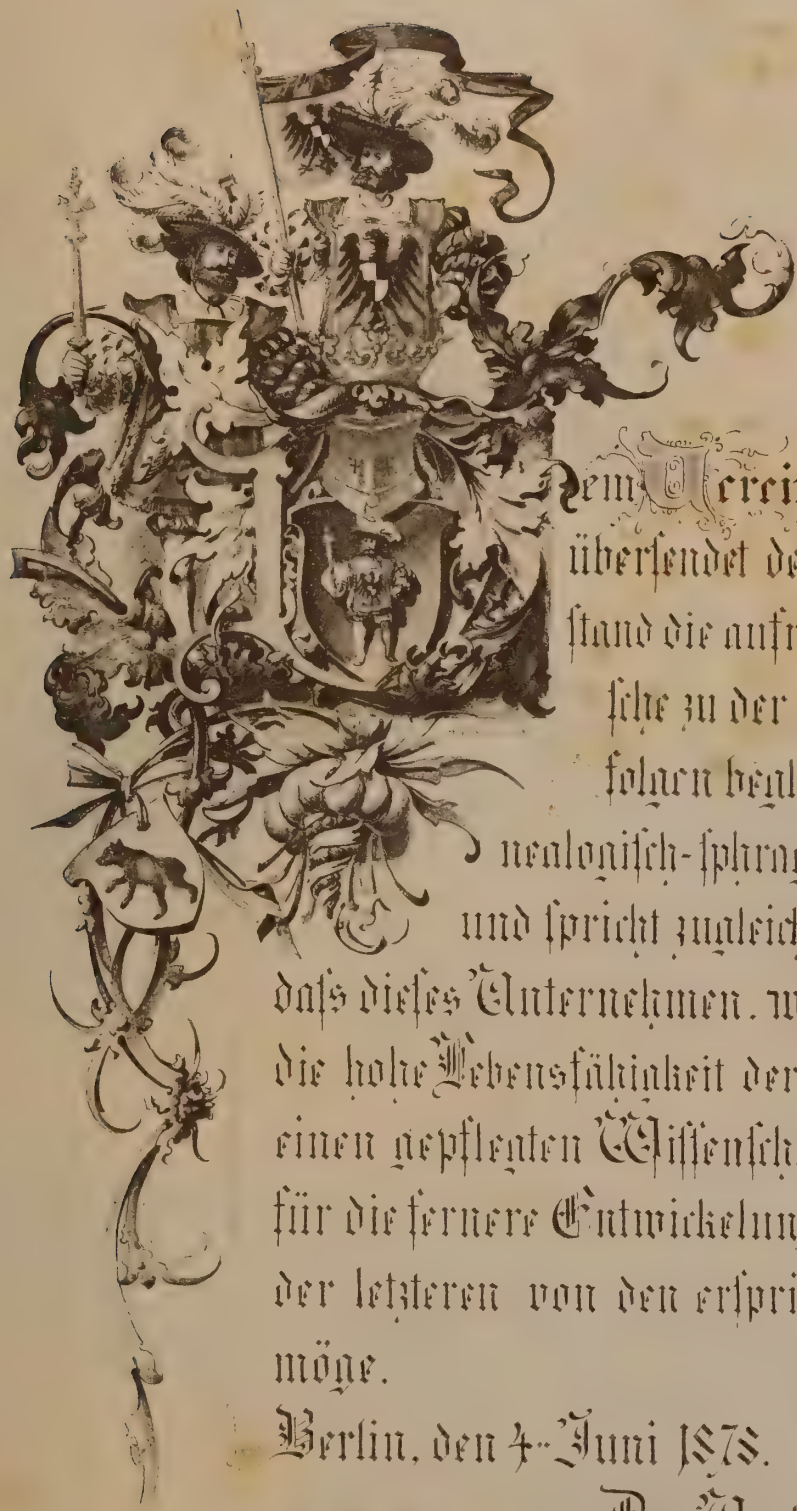 Dem Verein
überſendet de
ſtand die aufr
ſche zu der
folgen begl
nealogiſch-ſphrag
und ſpricht zugleich
daſs dieſes Unternehmen, w
die hohe Lebensfähigkeit der
einen gepflegten Wiſſenſch
für die fernere Entwickelun
der letzteren von den erſpri
möge.
Berlin, den 4. Juni 1878.